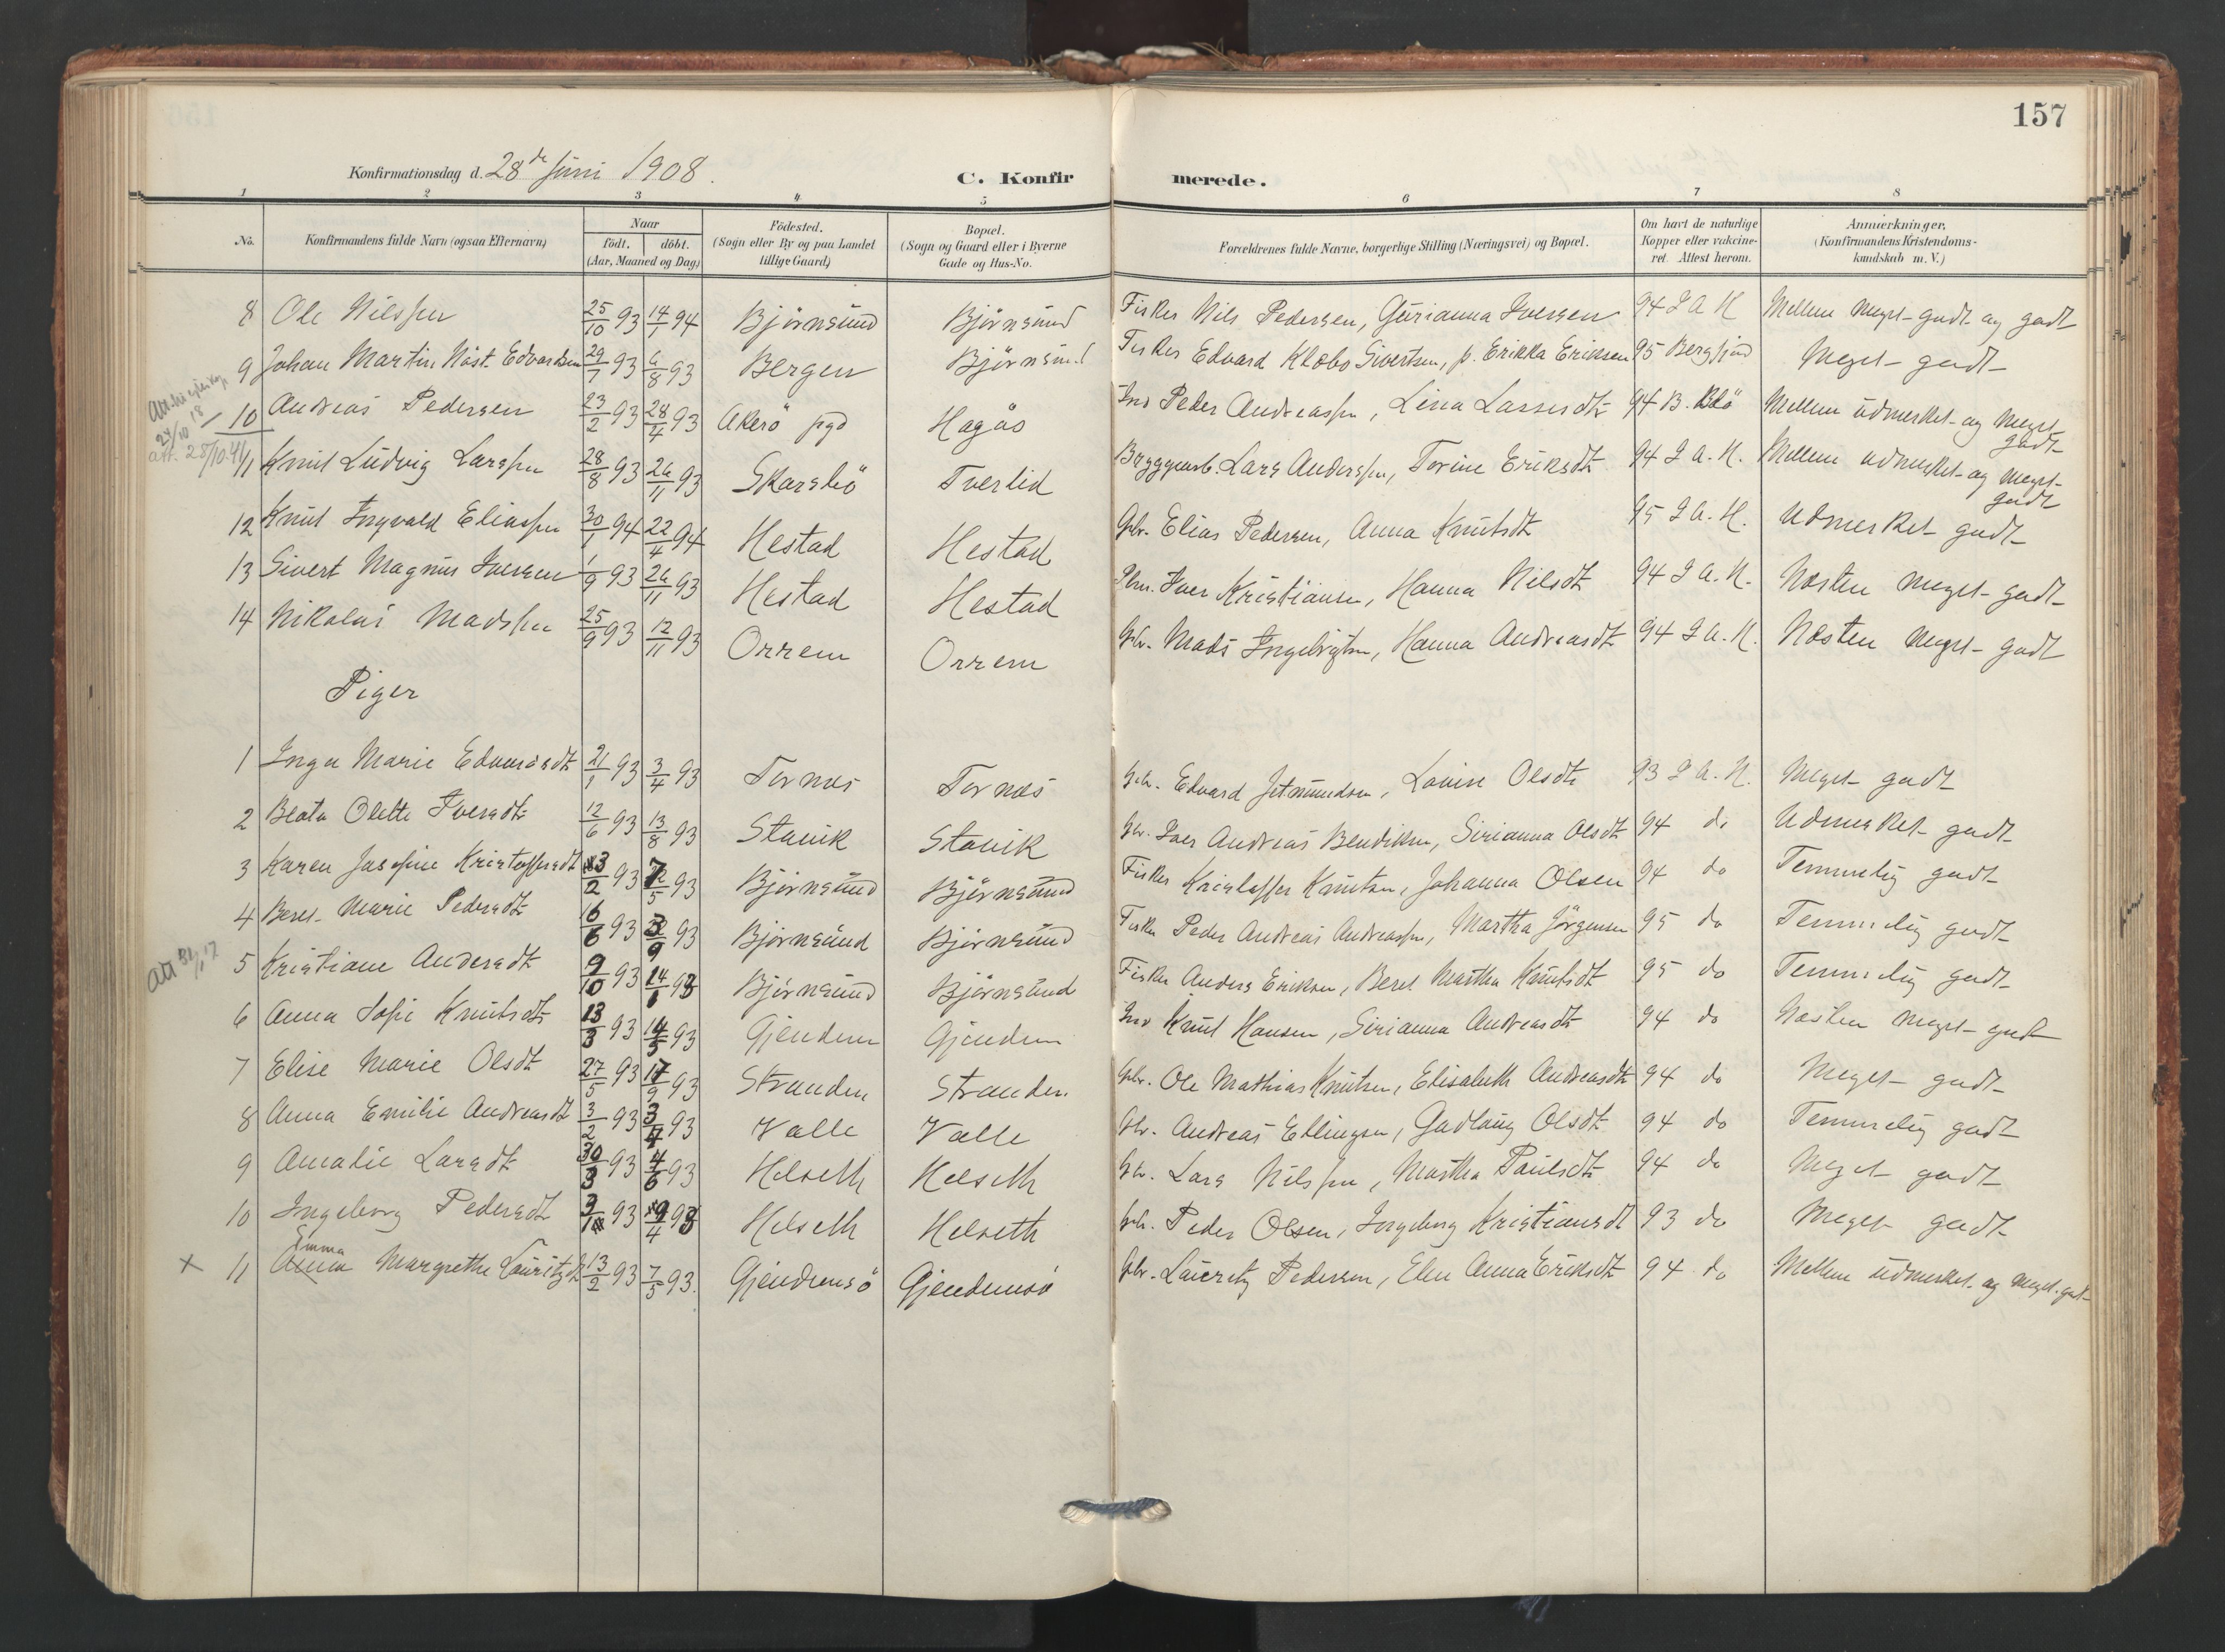 157
Konfirmationsdag d. 28de Juni 1908.
C. Konfirmerede.
1 2 3 4 5 6 7 8
No. Konfirmandens fulde Navn (ogsaa Efternavn) Naar født. døbt. (Aar, Maaned og Dag) Fødested. (Sogn eller By og paa Landet tillige Gaard) Bopæl. (Sogn og Gaard eller i Byerne Gade og Hus-No. Forældrenes fulde Navne, borgerlige Stilling (Næringsvei) og Bopæl. Om havt de naturlige Kopper eller vakcineret. Attest herom. Anmærkninger. (Konfirmandens Kristendomskundskab m. V.)
8 Ole Nilssen 25/10 93 14/1 94 Björnsund Björnsund Fisker Nils Pedersen, Gurianna Iversen 94 I A K Mellem meget godt og godt
9 Johan Martin Nöst Edvardsen 29/7 93 6/8 93 Bergen Björnsund Fisker Edvard Klobo Sivertsen, p. Erikka Eriksen 95 Meget godt
10 Andreas Pedersen 23/2 93 28/4 93 Akerö pgd Hagås Ind Peder Andreassen, Lina Larsesdt 94 B. Bdö Mellem udmerket og meget godt
att. 28/10.41
11 Knut Ludvig Larssen 28/8 93 26/11 93 Skarsbö Tverlid Bryggearb. Lars Anderssen, Torine Eriksdt 94 I A. K. Mellem udmerket og meget godt
12 Knut Ingvald Eliassen 30/1 94 22/4 94 Hestad Hestad Gbr. Elias Pedersen, Anna Knutsdt 95 I A. K. Udmerket godt
13 Sivert Magnus Iversen 1/9 93 26/11 93 Hestad Hestad Plm. Iver Kristiansen, Hanna Nilsdt 94 I A. K. Næsten meget godt
14 Nikolai Madssen 25/9 93 12/11 93 Orrem Orrem Gbr. Mads Ingebrigtsen, Hanna Andreasdt 94 I A. K. Næsten meget godt
Piger
1 Inga Marie Edvardsdt 21/1 93 3/4 93 Tornes Tornes Gbr. Edvard Jetmundsen, Lovise Olsdt 93 I A. K. Meget godt
2 Beata Olette Iversdt 12/6 93 13/8 93 Stavik Stavik Gbr. Iver Andreas Bendiksen, Sirianna Olsdt 94 do Udmerket godt
3 Karen Josefine Kristoffersdt 3/2 93 7/5 93 Björnsund Björnsund Fisker Kristoffer Knutsen, Johanna Olsen 94 do Temmelig godt
4 Beret Marie Pedersdt 16/6 93 3/9 93 Björnsund Björnsund Fisker Peder Andreas Andreassen, Martha Jörgensen 95 do Temmelig godt
Att 31/1 17
5 Kristiane Andersdt 9/10 93 14/1 93 Björnsund Björnsund Fisker Anders Eriksen, Beret Martha Knutsdt 95 do Temmelig godt
6 Anna Sofie Knutsdt 13/3 93 14/5 93 Gjendem Gjendem Ind Knut Hansen, Sirianna Andreasdt 94 do Næsten meget godt
7 Elise Marie Olsdt 27/5 93 17/9 93 Stranden Stranden Gbr. Ole Mathias Knutsen, Elisabeth Andreasdt 94 do Meget godt
8 Anna Emilie Andreasdt 3/2 93 3/4 93 Valle Valle Gbr. Andreas Ellingsen, Gudlaug Olsdt 94 do Temmelig godt
9 Amalie Larsdt 30/3 93 4/6 93 Helseth Helseth Gbr. Lars Nilssen, Martha Paulsdt 94 do Meget godt
10 Ingeborg Pedersdt 3/1 93 9/4 93 Helseth Helseth Gbr. Peder Olsen, Ingeborg Kristiansdt 93 do Meget godt
Emma
x 11 Anna Margrethe Lauritzdt 13/2 93 7/5 93. Gjendemsö Gjendemsö Gbr. Lauritz Pedersen, Elen Anna Eriksdt 94 do Mellem udmerket og meget godt